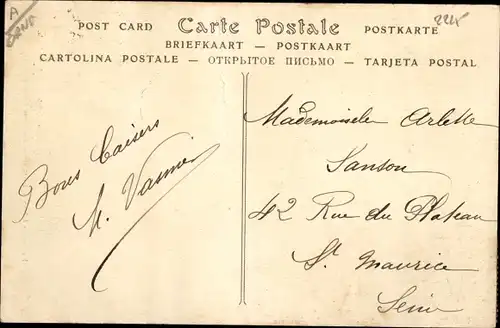 A
ORNE
2215
POST CARD Carte Postale POSTKARTE
BRIEFKAART — POSTKAART
CARTOLINA POSTALE — ОТКРЫТОЕ ПИСЬМО — TARJETA POSTAL
Bons baisers
Mademoiselle Arlette
Sanson
42 Rue du Plateau
St Maurice
Seine